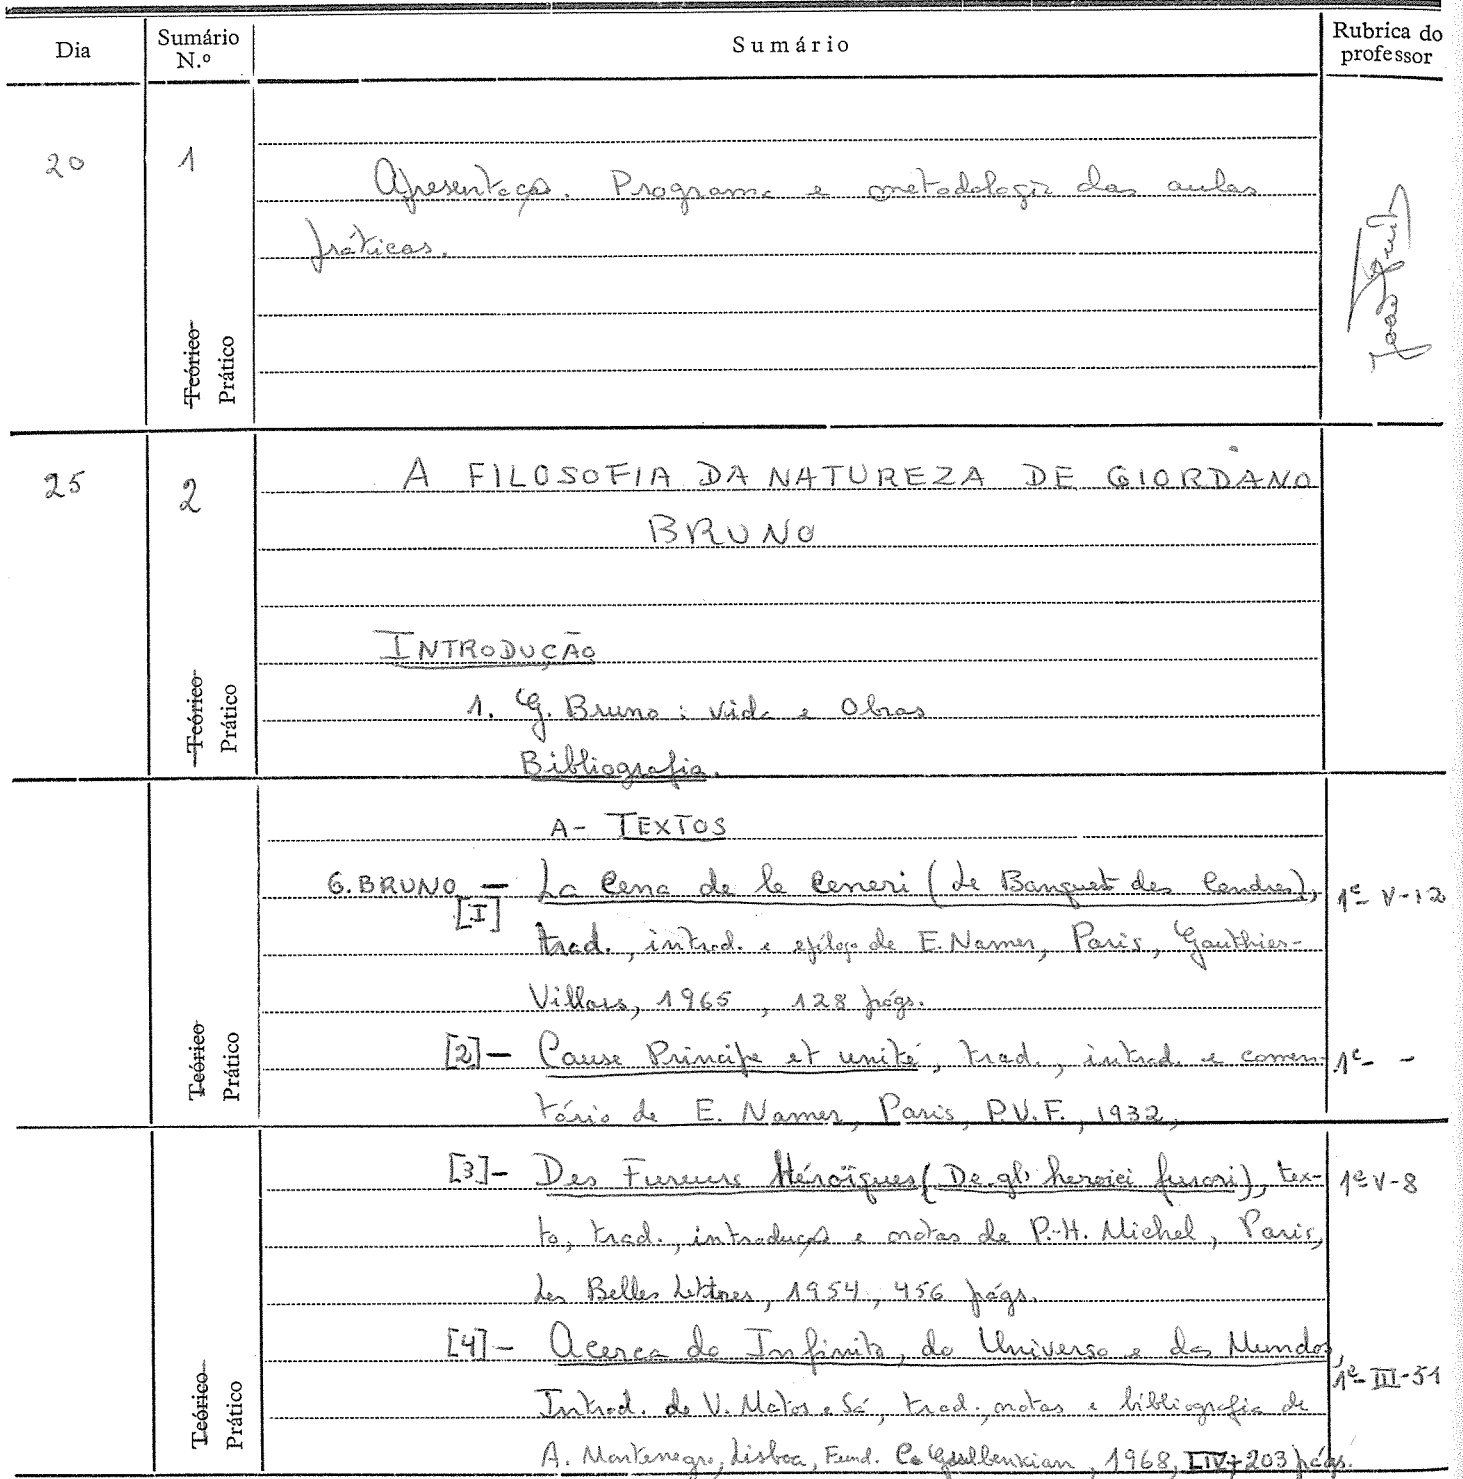 Dia Sumário N.º Sumário Rubrica do professor
20 1
Apresentação. Programa e metodologia das aulas
práticas.
Teórico
Prático
25 2 A FILOSOFIA DA NATUREZA DE GIORDANO
BRUNO
INTRODUÇÃO
1. G. Bruno : vida e Obras
Bibliografia.
Teórico
Prático
A- TEXTOS
G. BRUNO — La Cena de le Ceneri (Le Banquet des Cendres), 1ª- V-12
[I]
trad., introd. e epílogo de E. Namer, Paris, Gauthier-
Villars, 1965, 128 págs.
[2]— Cause Principe et unité, trad., introd. e comen- 1ª- -
tário de E. Namer, Paris, P.U.F., 1932,
Teórico
Prático
[3]- Des Fureurs Héroïques (De gl' heroici furori), tex- 1ª V-8
to, trad., introdução e notas de P.-H. Michel, Paris,
Les Belles Lettres, 1954, 456 págs.
[4]- Acerca do Infinito, do Universo e dos Mundos, 1ª- III-51
Introd. de V. Matos e Sá, trad., notas e bibliografia de
A. Montenegro, Lisboa, Fund. C. Gulbenkian, 1968, LIV+203 págs.
Teórico
Prático